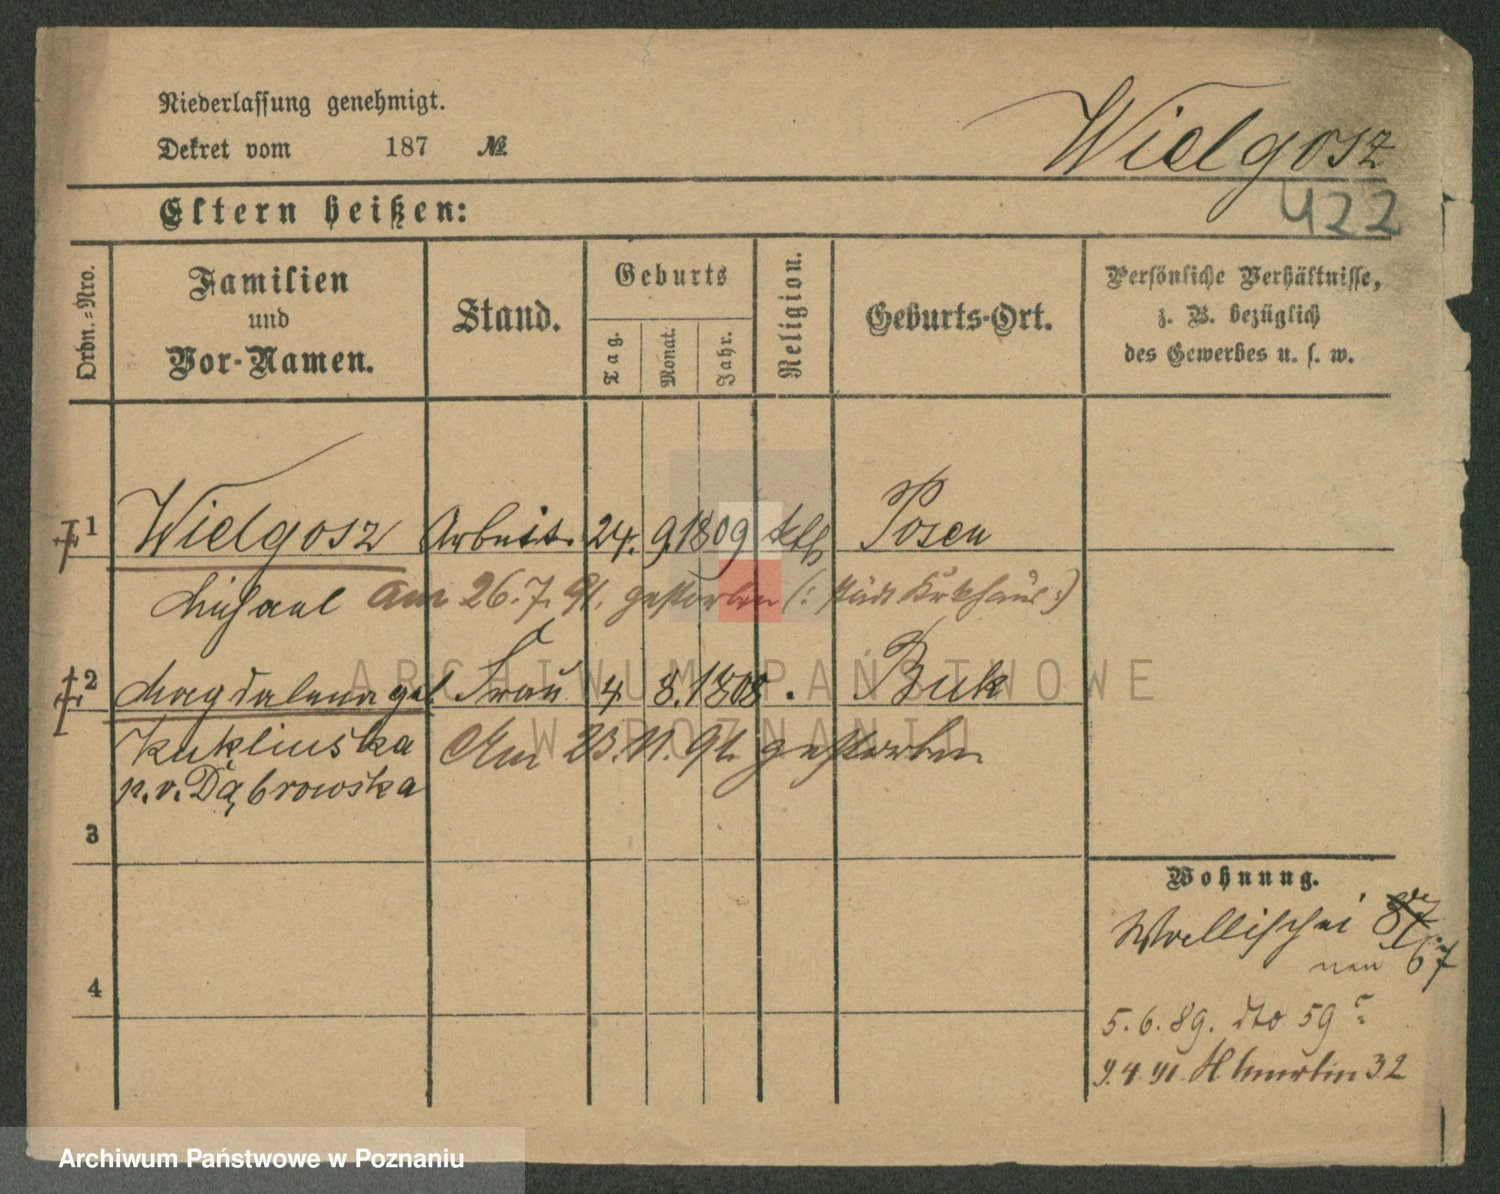 Niederlassung genehmigt.
Dekret vom 187 №
Wielgosz
422
Eltern heißen:
Ordn.=Nro.
Familien
und
Vor-Namen.
Stand.
Geburts
Tag.
Monat.
Jahr.
Religion.
Geburts-Ort.
Persönliche Verhältnisse,
z. B. bezüglich
des Gewerbes u. s. w.
1 Wielgosz Arbeit. 24. 9. 1809 kth Posen
Michael am 26.7.91. gestorben (: städt Krkhaus :)
2 Magdalena geb. Frau 4 8. 1808. Buk
Kuklińska Am 23.11.91. gestorben
p. v. Dąbrowska
3
4
Wohnung.
Wallischei 87
neu 67
5.6.89. dto 59
9.4.91. 32
ARCHIWUM PAŃSTWOWE
W POZNANIU
Archiwum Państwowe w Poznaniu